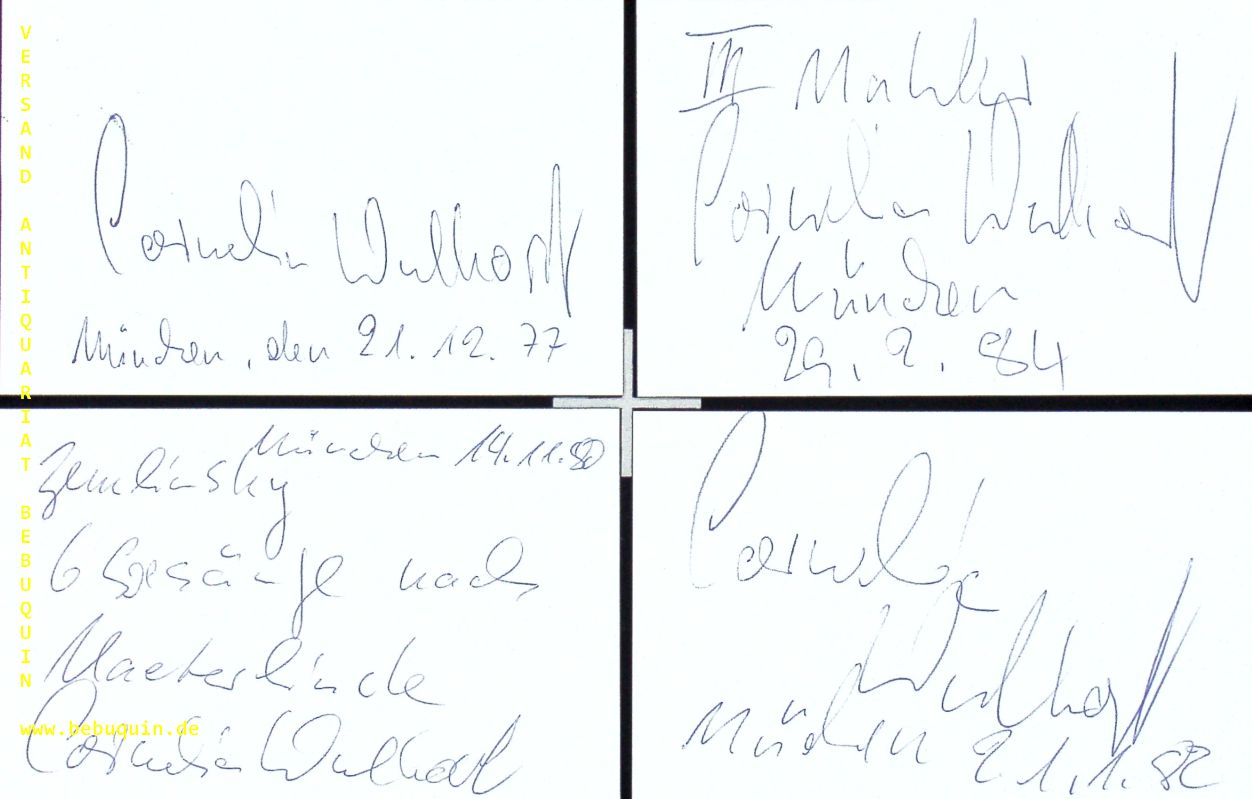 VERSAND ANTIQUARIAT BEBUQUIN
www.bebuquin.de
Cornelia Wulkopf
München, den 21. 12. 77
III Mahler
Cornelia Wulkopf
München
29. 2. 84
München 14.11.80
Zemlinsky
6 Gesänge nach
Maeterlinck
Cornelia Wulkopf
Cornelia
Wulkopf
München 21.1.82